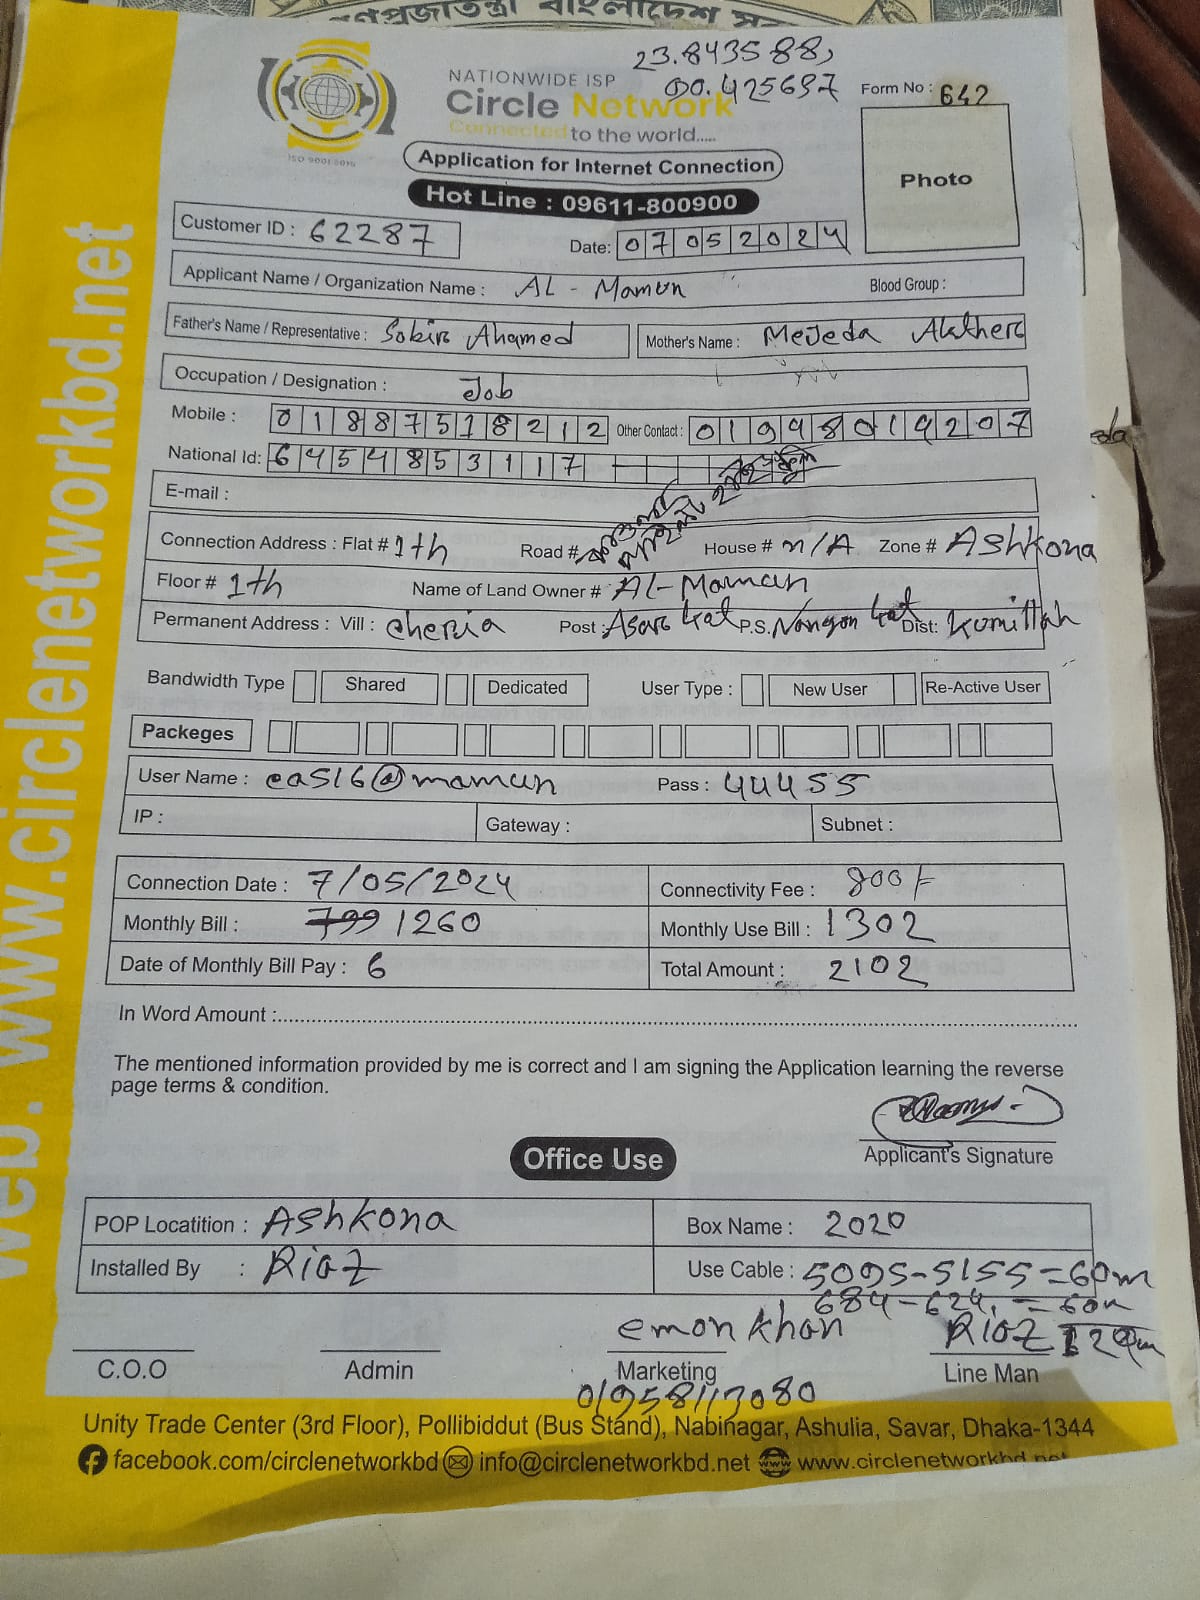 গণপ্রজাতন্ত্রী বাংলাদেশ
23.843588,
00.425697
NATIONWIDE ISP
Circle Network
Connected to the world.....
ISO 9001:2015
Form No : 642
Photo
Application for Internet Connection
Hot Line : 09611-800900
Customer ID : 62287
Date: 07052024
Applicant Name / Organization Name : AL - Mamun
Blood Group :
Father's Name / Representative : Sobir Ahamed
Mother's Name : MeJeda Akther
Occupation / Designation : Job
Mobile : 01887518212
Other Contact : 01998019207
National Id: 6454853117
E-mail :
Connection Address : Flat # 1th Road # House # n/A Zone # AShkona
Floor # 1th Name of Land Owner # AL-Mamun
Permanent Address : Vill : cheria Post : P.S. Dist: Kumillah
Bandwidth Type Shared Dedicated User Type : New User Re-Active User
Packeges
User Name : eas16@mamun Pass : 44455
IP : Gateway : Subnet :
Connection Date : 7/05/2024 Connectivity Fee : 800/-
Monthly Bill : 799 1260 Monthly Use Bill : 1302
Date of Monthly Bill Pay : 6 Total Amount : 2102
In Word Amount :
The mentioned information provided by me is correct and I am signing the Application learning the reverse
page terms & condition.
Applicant's Signature
Office Use
POP Locatition : AShkona Box Name : 2020
Installed By : Riaz Use Cable : 5095-5155=60m
684-624, = 60m
emon khan Riaz 120m
C.O.O Admin Marketing Line Man
01958113080
Unity Trade Center (3rd Floor), Pollibiddut (Bus Stand), Nabinagar, Ashulia, Savar, Dhaka-1344
facebook.com/circlenetworkbd info@circlenetworkbd.net www.circlenetworkbd.net
web: www.circlenetworkbd.net